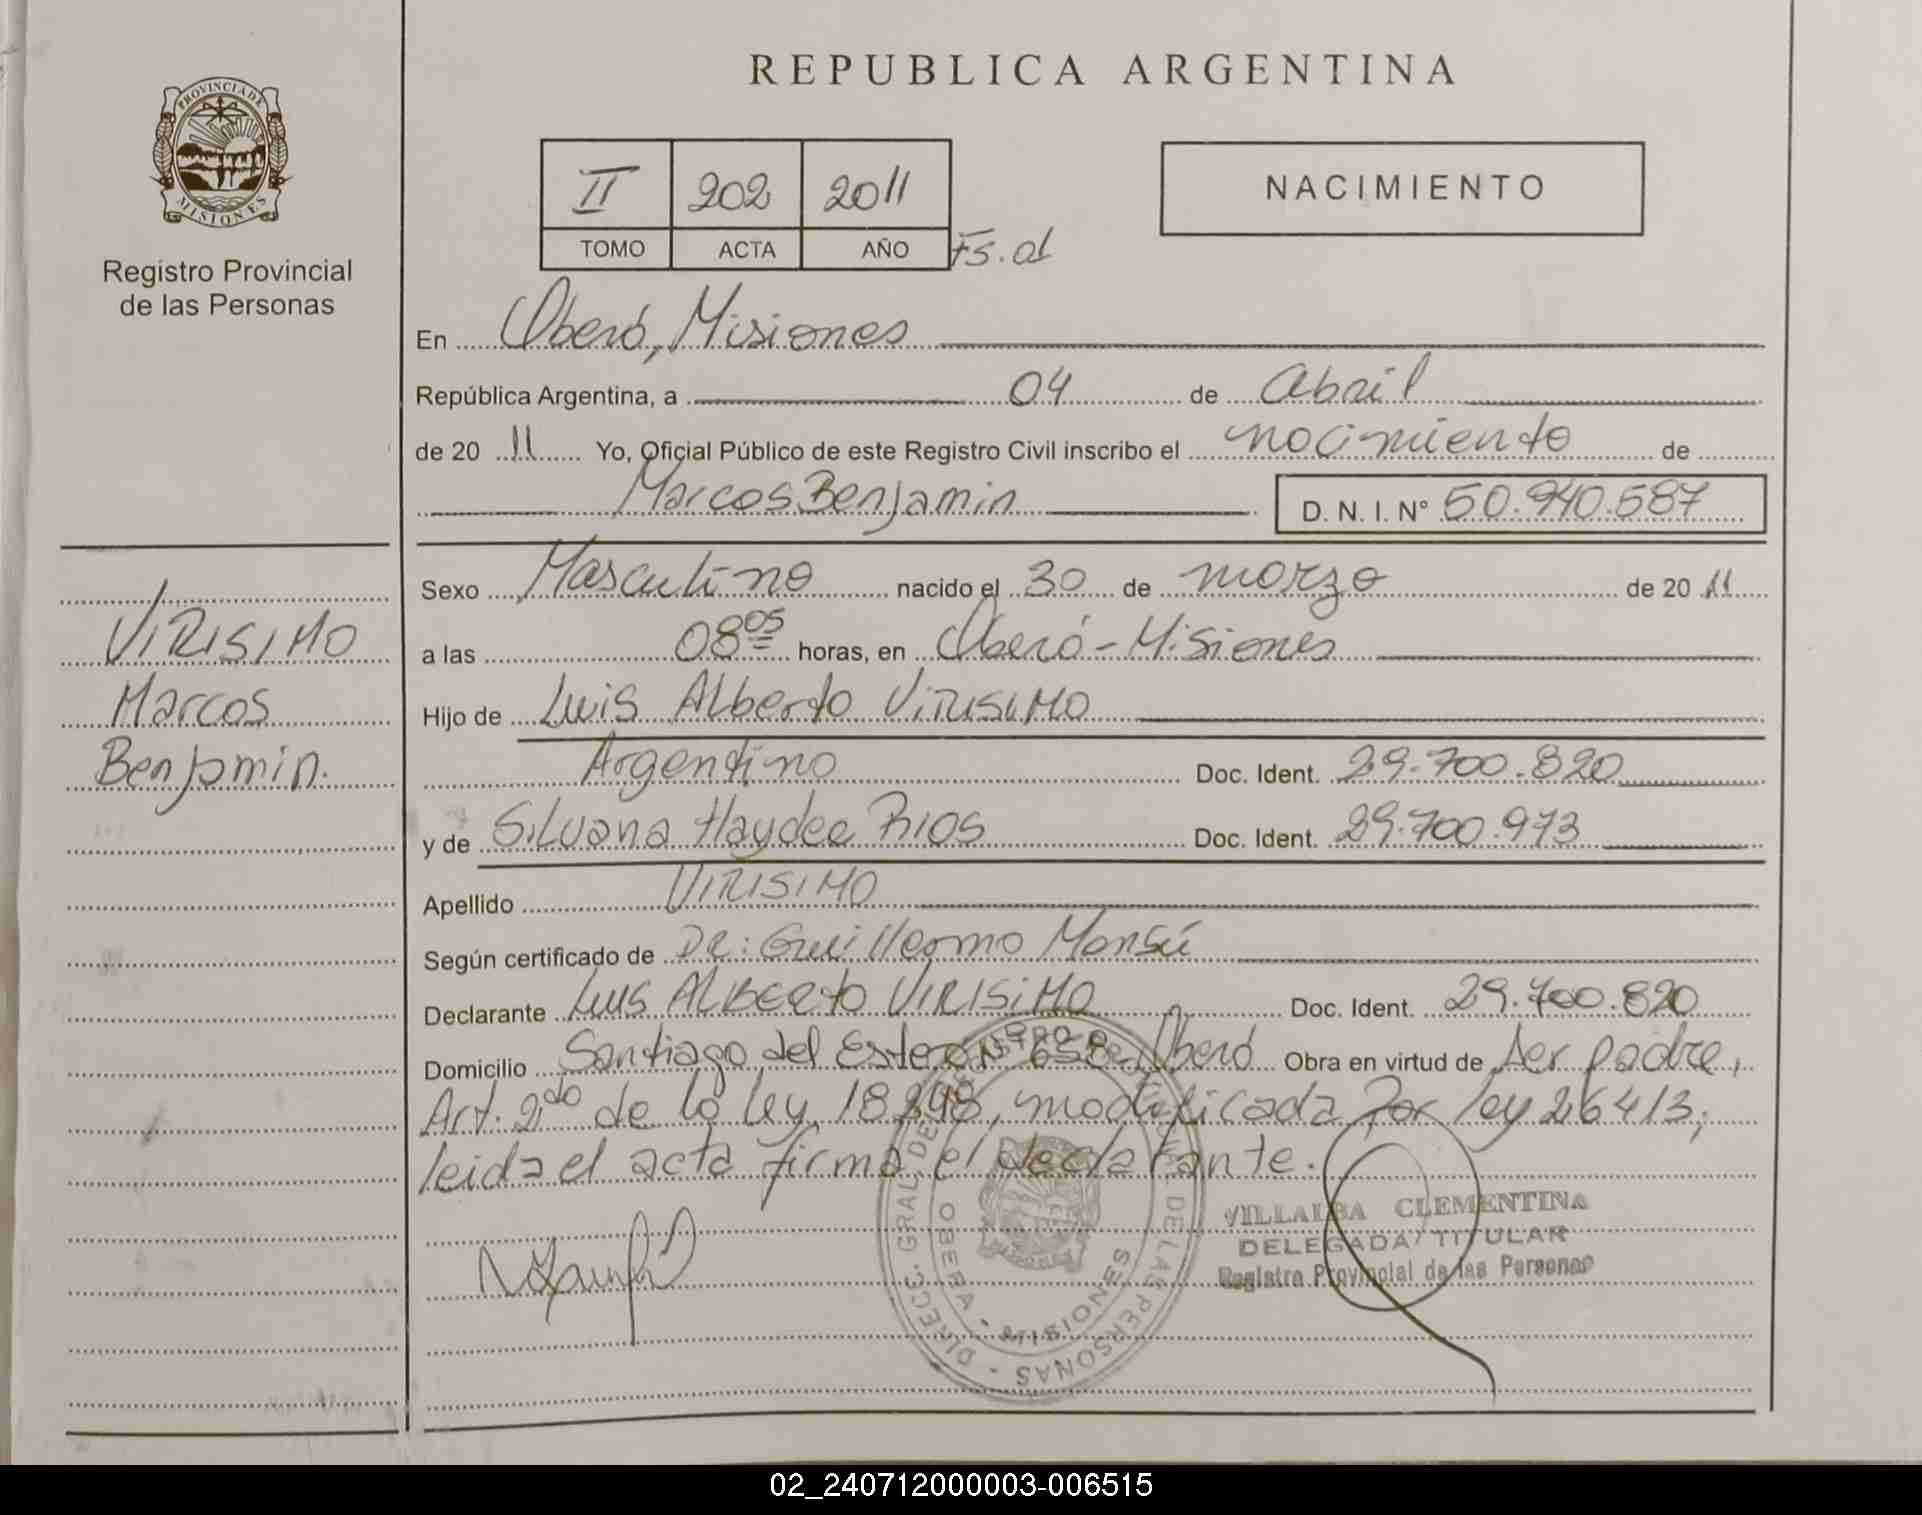 REPUBLICA ARGENTINA
PROVINCIA DE
MISIONES
Registro Provincial
de las Personas
II 202 2011
TOMO ACTA AÑO Fs. 01
NACIMIENTO
En Oberá, Misiones
República Argentina, a 04 de Abril
de 20 11 Yo, Oficial Público de este Registro Civil inscribo el nacimiento de
Marcos Benjamin D. N. I. N° 50.940.587
VIRISIMO
Marcos
Benjamin.
Sexo Masculino nacido el 30 de marzo de 20 11
a las 08 05 horas, en Oberá - Misiones
Hijo de Luis Alberto VIRISIMO
Argentino Doc. Ident. 29.700.820
y de Silvana Haydee RIOS Doc. Ident. 29.700.973
Apellido VIRISIMO
Según certificado de Dr: Guillermo
Declarante Luis ALBERTO VIRISIMO Doc. Ident. 29.700.820
Domicilio Santiago del Estero N° 658 Oberá Obra en virtud de ser padre,
Art. 2do de la ley 18248, modificada por ley 26413;
leida el acta firma el declarante.
VILLALBA CLEMENTINA
DELEGADA TITULAR
Registro Provincial de las Personas
DIRECC. GRAL. DE REGISTRO PROVINCIAL DE LAS PERSONAS
OBERA - MISIONES
02_240712000003-006515